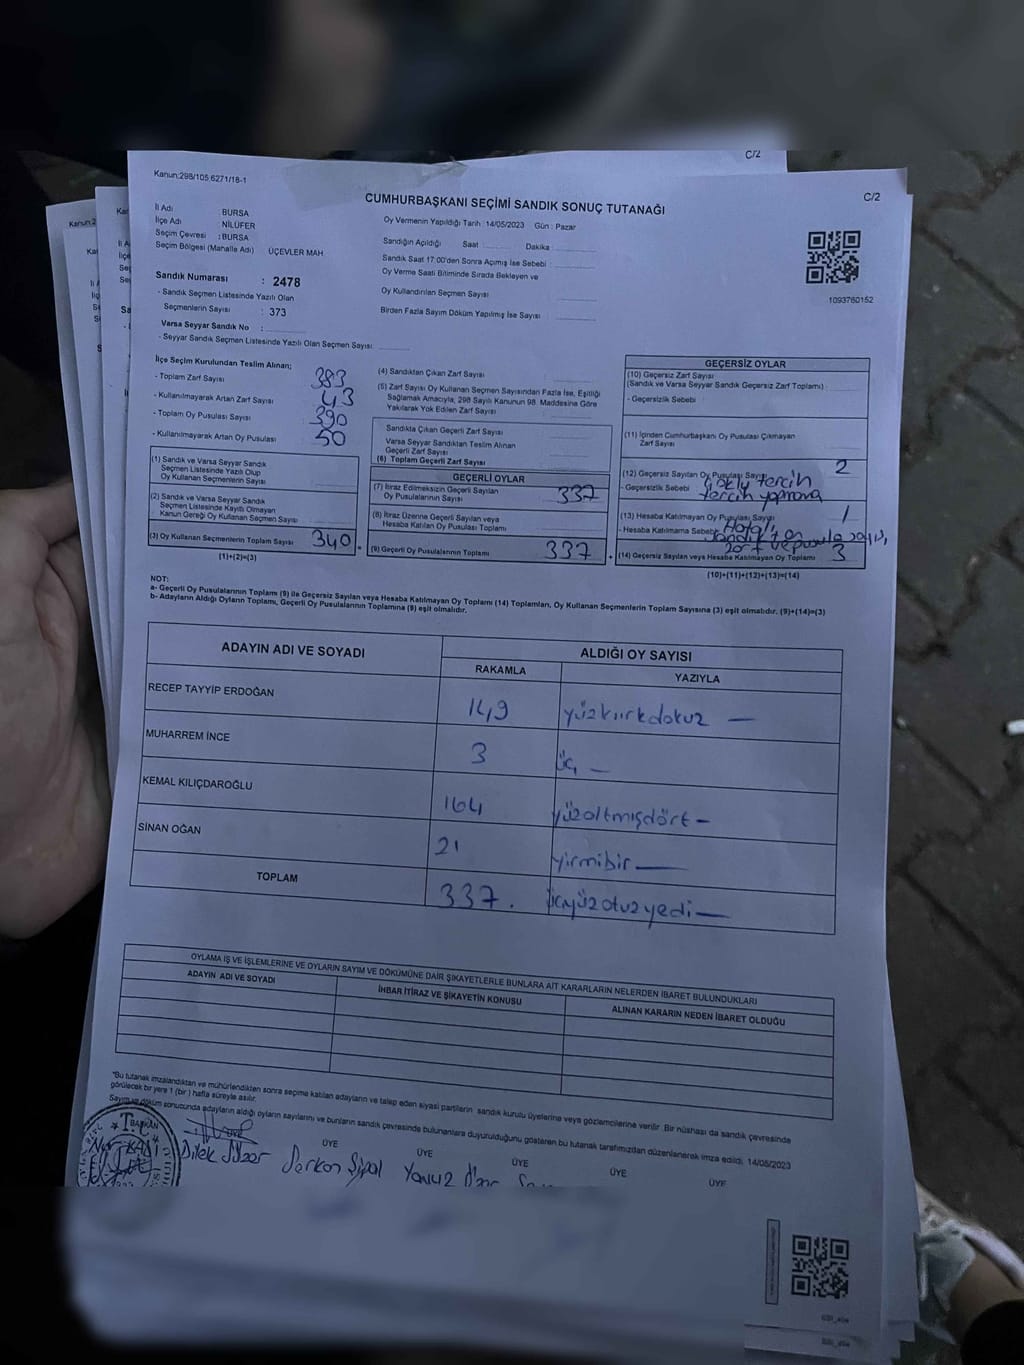 C/2
Kanun:298/105 6271/18-1
C/2
CUMHURBAŞKANI SEÇİMİ SANDIK SONUÇ TUTANAĞI
İl Adı BURSA
İlçe Adı NİLÜFER
Seçim Çevresi : BURSA
Seçim Bölgesi (Mahalle Adı) ÜÇEVLER MAH
Oy Vermenin Yapıldığı Tarih :14/05/2023 Gün : Pazar
Sandığın Açıldığı Saat Dakika
Sandık Saat 17:00'den Sonra Açılmış İse Sebebi :
Oy Verme Saati Bitiminde Sırada Bekleyen ve
Oy Kullandırılan Seçmen Sayısı
Birden Fazla Sayım Döküm Yapılmış İse Sayısı
1093760152
Sandık Numarası : 2478
- Sandık Seçmen Listesinde Yazılı Olan
Seçmenlerin Sayısı : 373
Varsa Seyyar Sandık No :
- Seyyar Sandık Seçmen Listesinde Yazılı Olan Seçmen Sayısı:
İlçe Seçim Kurulundan Teslim Alınan;
- Toplam Zarf Sayısı 383
- Kullanılmayarak Artan Zarf Sayısı 43
- Toplam Oy Pusulası Sayısı 390
- Kullanılmayarak Artan Oy Pusulası 50
(1) Sandık ve Varsa Seyyar Sandık
Seçmen Listesinde Yazılı Olup
Oy Kullanan Seçmenlerin Sayısı
(2) Sandık ve Varsa Seyyar Sandık
Seçmen Listesinde Kayıtlı Olmayan
Kanun Gereği Oy Kullanan Seçmen Sayısı
(3) Oy Kullanan Seçmenlerin Toplam Sayısı 340
(1)+(2)=(3)
(4) Sandıktan Çıkan Zarf Sayısı
(5) Zarf Sayısı Oy Kullanan Seçmen Sayısından Fazla İse, Eşitliği
Sağlamak Amacıyla, 298 Sayılı Kanunun 98. Maddesine Göre
Yakılarak Yok Edilen Zarf Sayısı
Sandıkta Çıkan Geçerli Zarf Sayısı
Varsa Seyyar Sandıktan Teslim Alınan
Geçerli Zarf Sayısı
(6) Toplam Geçerli Zarf Sayısı
GEÇERLİ OYLAR
(7) İtiraz Edilmeksizin Geçerli Sayılan
Oy Pusulalarının Sayısı 337
(8) İtiraz Üzerine Geçerli Sayılan veya
Hesaba Katılan Oy Pusulası Toplamı
(9) Geçerli Oy Pusulalarının Toplamı 337
GEÇERSİZ OYLAR
(10) Geçersiz Zarf Sayısı
(Sandık ve Varsa Seyyar Sandık Geçersiz Zarf Toplamı)
- Geçersizlik Sebebi
(11) İçinden Cumhurbaşkanı Oy Pusulası Çıkmayan
Zarf Sayısı
(12) Geçersiz Sayılan Oy Pusulası Sayısı 2
- Geçersizlik Sebebi tercih
tercih yapmama
(13) Hesaba Katılmayan Oy Pusulası Sayısı 1
- Hesaba Katılmama Sebebi Hatalı
zarf ve pusula sayısı
(14) Geçersiz Sayılan veya Hesaba Katılmayan Oy Toplamı 3
(10)+(11)+(12)+(13)=(14)
NOT:
a- Geçerli Oy Pusulalarının Toplamı (9) ile Geçersiz Sayılan veya Hesaba Katılmayan Oy Toplamı (14) Toplamları, Oy Kullanan Seçmenlerin Toplam Sayısına (3) eşit olmalıdır. (9)+(14)=(3)
b- Adayların Aldığı Oyların Toplamı, Geçerli Oy Pusulalarının Toplamına (9) eşit olmalıdır.
ADAYIN ADI VE SOYADI ALDIĞI OY SAYISI
RAKAMLA YAZIYLA
RECEP TAYYİP ERDOĞAN 149 yüzkırkdokuz —
MUHARREM İNCE 3 üç —
KEMAL KILIÇDAROĞLU 164 yüzaltmışdört —
SİNAN OĞAN 21 yirmibir —
TOPLAM 337. üçyüzotuzyedi —
OYLAMA İŞ VE İŞLEMLERİNE VE OYLARIN SAYIM VE DÖKÜMÜNE DAİR ŞİKAYETLERLE BUNLARA AİT KARARLARIN NELERDEN İBARET BULUNDUKLARI
ADAYIN ADI VE SOYADI İHBAR İTİRAZ VE ŞİKAYETİN KONUSU ALINAN KARARIN NEDEN İBARET OLDUĞU
*Bu tutanak imzalandıktan ve mühürlendikten sonra seçime katılan adayların ve talep eden siyasi partilerin sandık kurulu üyelerine veya gözlemcilerine verilir. Bir nüshası da sandık çevresinde
görülecek bir yere 1 (bir) hafta süreyle asılır.
Sayım ve döküm sonucunda adayların aldığı oyların sayılarını ve bunların sandık çevresinde bulunanlara duyurulduğunu gösteren bu tutanak tarafımızdan düzenlenerek imza edildi. 14/05/2023
BAŞKAN ÜYE ÜYE ÜYE ÜYE ÜYE
T.C.
Dilek Serkan Yavuz